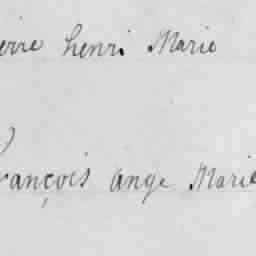 erre henri Marie
rançois ange Marie